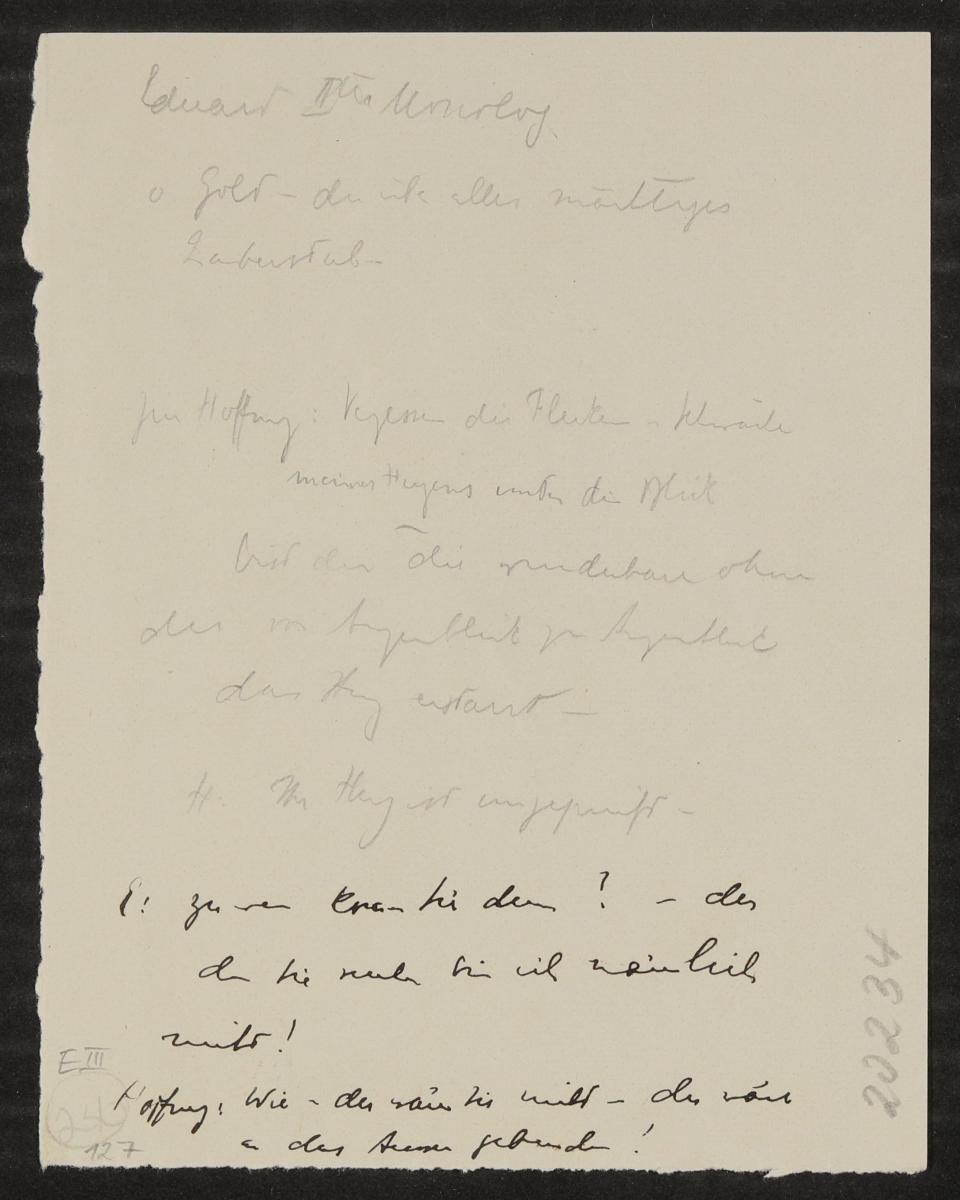 Eduard IIter Monolog.
o Gold – du alles mächtiges
Zauberstab –
zur Hoffnung: Vergessen die Flecken –
meines Herzens unter die Blick
bist du die wunderbare ohne
das von Augenblick zu Augenblick
das Herz erstarrt –
H. Ihr Herz ist ungeprüft –
E: zu wem kam Sie denn? – der
den Sie suchen bin ich nämlich
nicht!
Hoffnung: Wie – der wären Sie nicht – der wäre
an das gebunden!
E III
24
127
20234